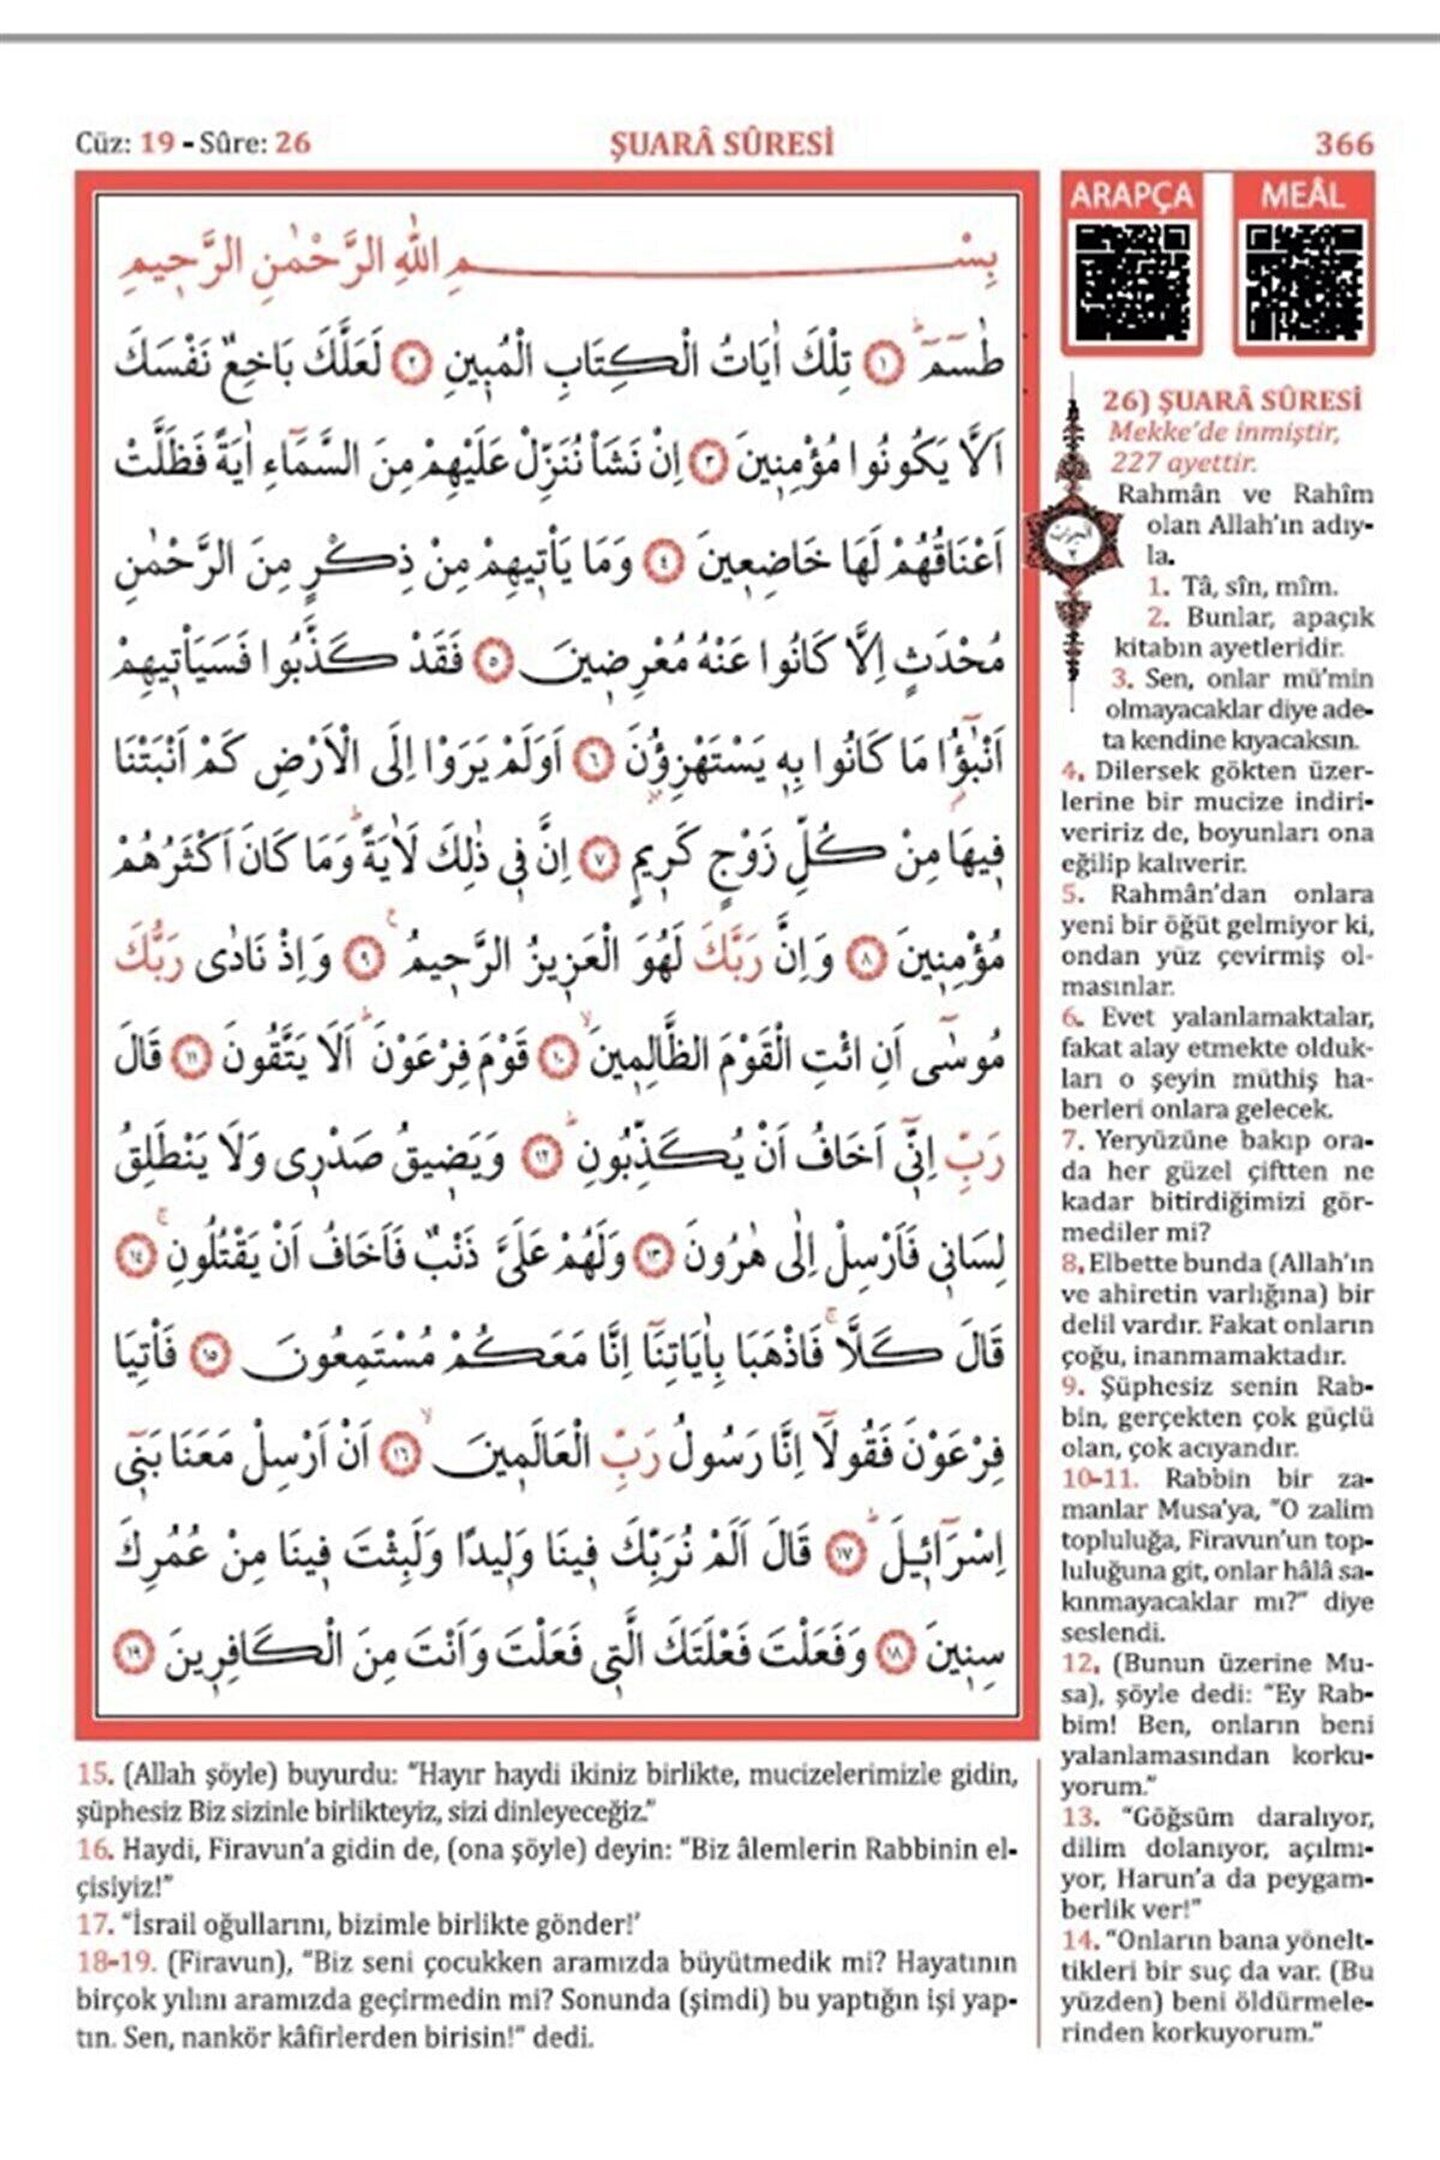 Cüz: 19 - Sûre: 26
ŞUARÂ SÛRESİ
366
بِسْمِ اللّٰهِ الرَّحْمٰنِ الرَّح۪يمِ
طٰسٓمٓۜ ﴿١﴾ تِلْكَ اٰيَاتُ الْكِتَابِ الْمُب۪ينِ ﴿٢﴾ لَعَلَّكَ بَاخِعٌ نَفْسَكَ
اَلَّا يَكُونُوا مُؤْمِن۪ينَ ﴿٣﴾ اِنْ نَشَأْ نُنَزِّلْ عَلَيْهِمْ مِنَ السَّمَٓاءِ اٰيَةً فَظَلَّتْ
اَعْنَاقُهُمْ لَهَا خَاضِع۪ينَ ﴿٤﴾ وَمَا يَأْت۪يهِمْ مِنْ ذِكْرٍ مِنَ الرَّحْمٰنِ
مُحْدَثٍ اِلَّا كَانُوا عَنْهُ مُعْرِض۪ينَ ﴿٥﴾ فَقَدْ كَذَّبُوا فَسَيَأْت۪يهِمْ
اَنْبٰٓؤُ۬ا مَا كَانُوا بِه۪ يَسْتَهْزِؤُ۫نَ ﴿٦﴾ اَوَلَمْ يَرَوْا اِلَى الْاَرْضِ كَمْ اَنْبَتْنَا
ف۪يهَا مِنْ كُلِّ زَوْجٍ كَر۪يمٍ ﴿٧﴾ اِنَّ ف۪ي ذٰلِكَ لَاٰيَةًۜ وَمَا كَانَ اَكْثَرُهُمْ
مُؤْمِن۪ينَ ﴿٨﴾ وَاِنَّ رَبَّكَ لَهُوَ الْعَز۪يزُ الرَّح۪يمُ۟ ﴿٩﴾ وَاِذْ نَادٰى رَبُّكَ
مُوسٰٓى اَنِ ائْتِ الْقَوْمَ الظَّالِم۪ينَۙ ﴿١٠﴾ قَوْمَ فِرْعَوْنَۜ اَلَا يَتَّقُونَ ﴿١١﴾ قَالَ
رَبِّ اِنّ۪ٓي اَخَافُ اَنْ يُكَذِّبُونِۜ ﴿١٢﴾ وَيَض۪يقُ صَدْر۪ي وَلَا يَنْطَلِقُ
لِسَان۪ي فَاَرْسِلْ اِلٰى هٰرُونَ ﴿١٣﴾ وَلَهُمْ عَلَيَّ ذَنْبٌ فَاَخَافُ اَنْ يَقْتُلُونِۚ ﴿١٤﴾
قَالَ كَلَّاۚ فَاذْهَبَا بِاٰيَاتِنَٓا اِنَّا مَعَكُمْ مُسْتَمِعُونَ ﴿١٥﴾ فَأْتِيَا
فِرْعَوْنَ فَقُولَٓا اِنَّا رَسُولُ رَبِّ الْعَالَم۪ينَۙ ﴿١٦﴾ اَنْ اَرْسِلْ مَعَنَا بَن۪ٓي
اِسْرَٓاء۪يلَۜ ﴿١٧﴾ قَالَ اَلَمْ نُرَبِّكَ ف۪ينَا وَل۪يدًا وَلَبِثْتَ ف۪ينَا مِنْ عُمُرِكَ
سِن۪ينَ ﴿١٨﴾ وَفَعَلْتَ فَعْلَتَكَ الَّت۪ي فَعَلْتَ وَاَنْتَ مِنَ الْكَافِر۪ينَ ﴿١٩﴾
ARAPÇA
MEÂL
26) ŞUARÂ SÛRESİ
Mekke'de inmiştir,
227 ayettir.
Rahmân ve Rahîm
olan Allah'ın adıy-
la.
1. Tâ, sîn, mîm.
2. Bunlar, apaçık
kitabın ayetleridir.
3. Sen, onlar mü'min
olmayacaklar diye ade-
ta kendine kıyacaksın.
4. Dilersek gökten üzer-
lerine bir mucize indiri-
veririz de, boyunları ona
eğilip kalıverir.
5. Rahmân'dan onlara
yeni bir öğüt gelmiyor ki,
ondan yüz çevirmiş ol-
masınlar.
6. Evet yalanlamaktalar,
fakat alay etmekte olduk-
ları o şeyin müthiş ha-
berleri onlara gelecek.
7. Yeryüzüne bakıp ora-
da her güzel çiftten ne
kadar bitirdiğimizi gör-
mediler mi?
8. Elbette bunda (Allah'ın
ve ahiretin varlığına) bir
delil vardır. Fakat onların
çoğu, inanmamaktadır.
9. Şüphesiz senin Rab-
bin, gerçekten çok güçlü
olan, çok acıyandır.
10-11. Rabbin bir za-
manlar Musa'ya, "O zalim
topluluğa, Firavun'un top-
luluğuna git, onlar hâlâ sa-
kınmayacaklar mı?" diye
seslendi.
12. (Bunun üzerine Mu-
sa), şöyle dedi: "Ey Rab-
bim! Ben, onların beni
yalanlamasından korku-
yorum."
13. "Göğsüm daralıyor,
dilim dolanıyor, açılmı-
yor, Harun'a da peygam-
berlik ver!"
14. "Onların bana yönelt-
tikleri bir suç da var. (Bu
yüzden) beni öldürmele-
rinden korkuyorum."
15. (Allah şöyle) buyurdu: "Hayır haydi ikiniz birlikte, mucizelerimizle gidin,
şüphesiz Biz sizinle birlikteyiz, sizi dinleyeceğiz."
16. Haydi, Firavun'a gidin de, (ona şöyle) deyin: "Biz âlemlerin Rabbinin el-
çisiyiz!"
17. "İsrail oğullarını, bizimle birlikte gönder!'
18-19. (Firavun), "Biz seni çocukken aramızda büyütmedik mi? Hayatının
birçok yılını aramızda geçirmedin mi? Sonunda (şimdi) bu yaptığın işi yap-
tın. Sen, nankör kâfirlerden birisin!" dedi.